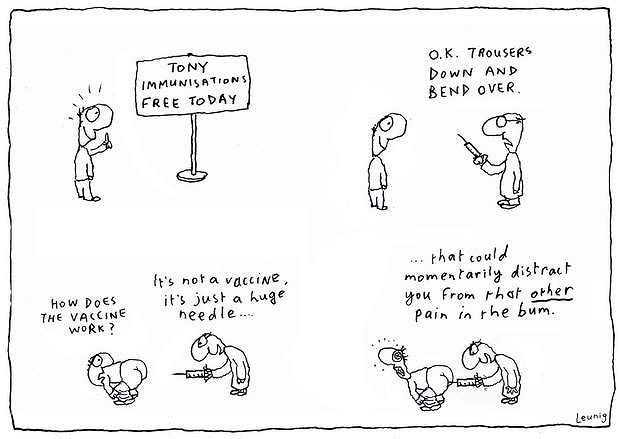 TONY
IMMUNISATIONS
FREE TODAY
O.K. TROUSERS
DOWN AND
BEND OVER.
HOW DOES
THE VACCINE
WORK?
It's not a vaccine,
it's just a huge
needle....
... that could
momentarily distract
you from that other
pain in the bum.
Leunig